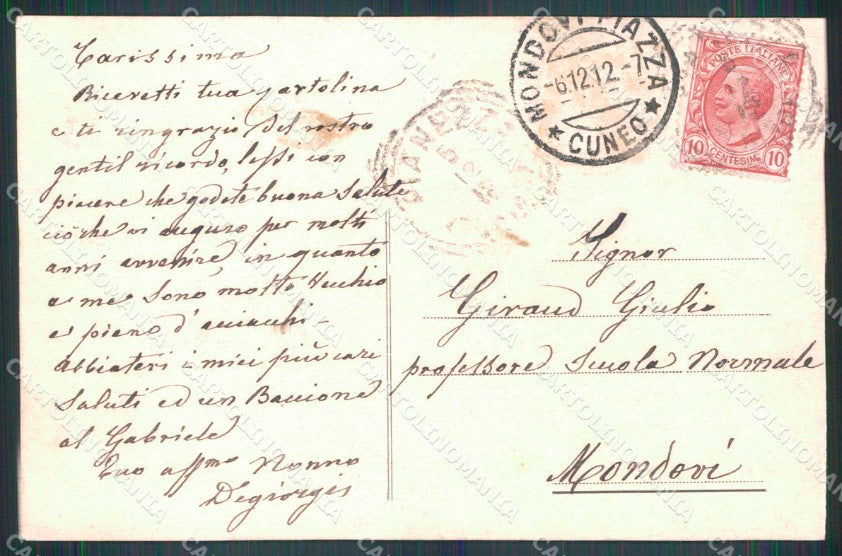 Carissima
Ricevetti tua cartolina
e te ringrazio del vostro
gentil ricordo, lessi con
piacere che godete buona salute
ciò che vi auguro per molti
anni avvenire, in quanto
a me sono molto Vecchio
e pieno d'acciacchi -
abbiatevi i miei più cari
saluti ed un Baccione
al Gabriele
Tuo affmo Nonno
Degiorgis
MONDOVI PIAZZA
-6.12.12.-7
★ CUNEO ★
POSTE ITALIANE
10 CENTESIMI 10
Signor
Giraud Giulio
professore Scuola Normale
Mondoví
CARTOLINOMANIA